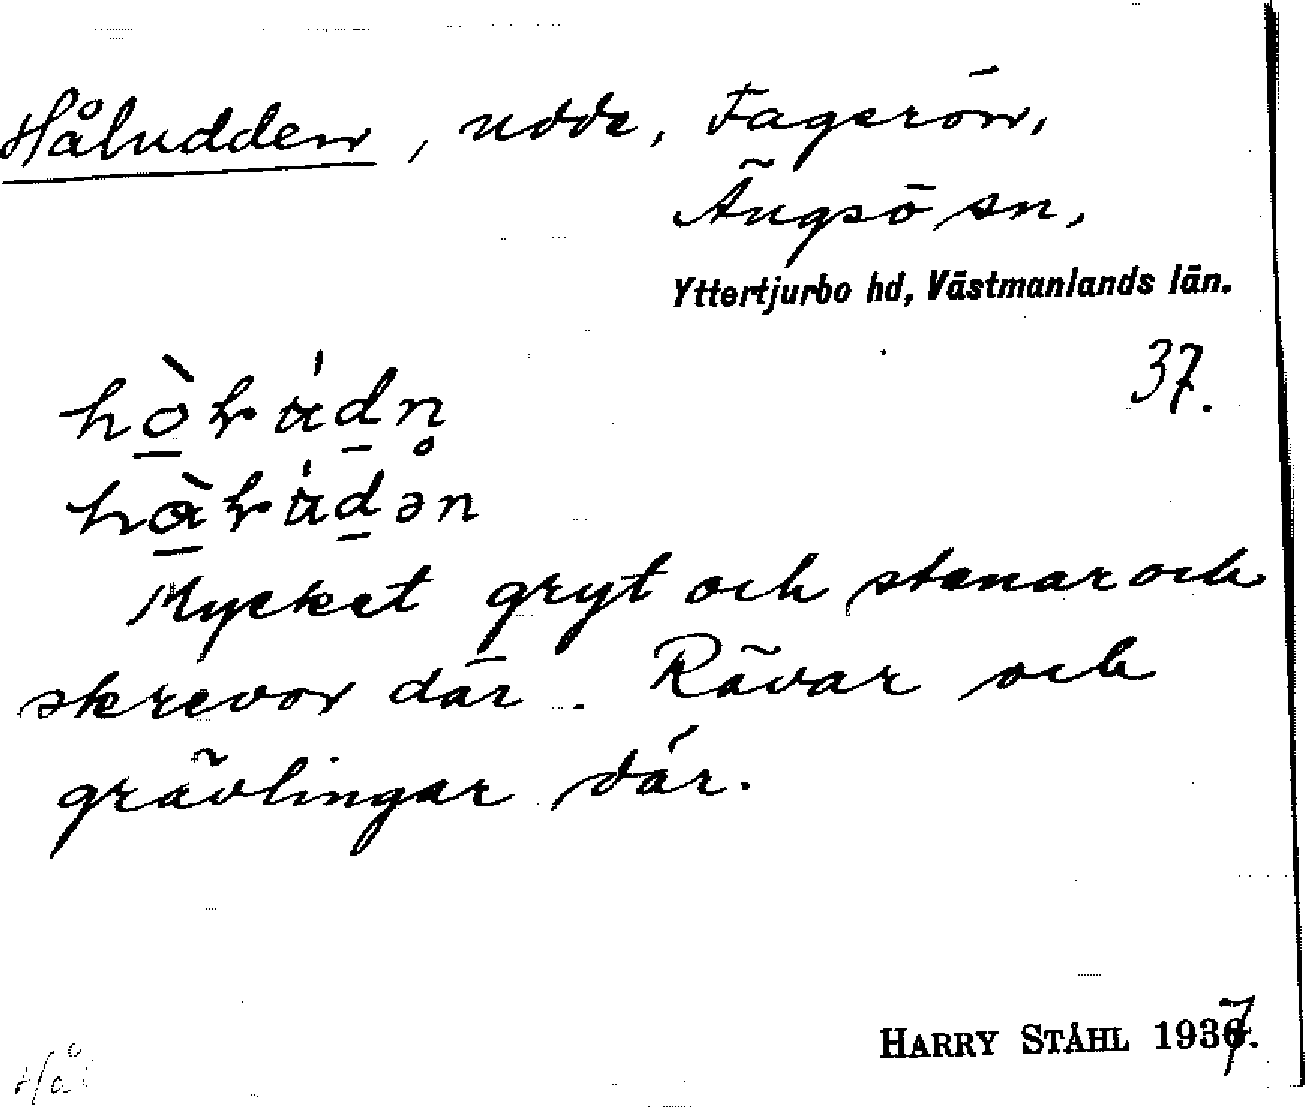 Håludden, udde, Fagerön,
Ängsö sn,
Yttertjurbo hd, Västmanlands län.
37.
Mycket gryt och stenar och
skrevor där. Rävar och
grävlingar där.
HARRY STÅHL 1937.
Hål